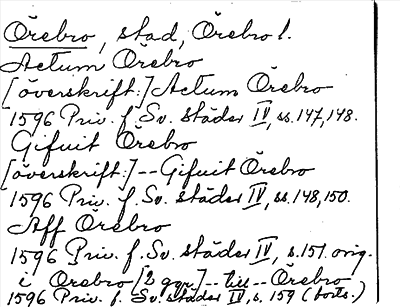 Örebro, stad, Örebro l.
Actum Örebro
[överskrift:] Actum Örebro
1596 Priv. f. Sv. städer IV, ss. 147, 148.
Gifuit Örebro
[överskrift:] -- Gifuit Örebro
1596 Priv. f. Sv. städer IV, ss. 148, 150.
Aff Örebro
1596 Priv. f. Sv. städer IV, s. 151. orig.
i Örebro [2 ggr.] -- till -- Örebro
1596 Priv. f. Sv. städer IV, s. 159 (forts.)